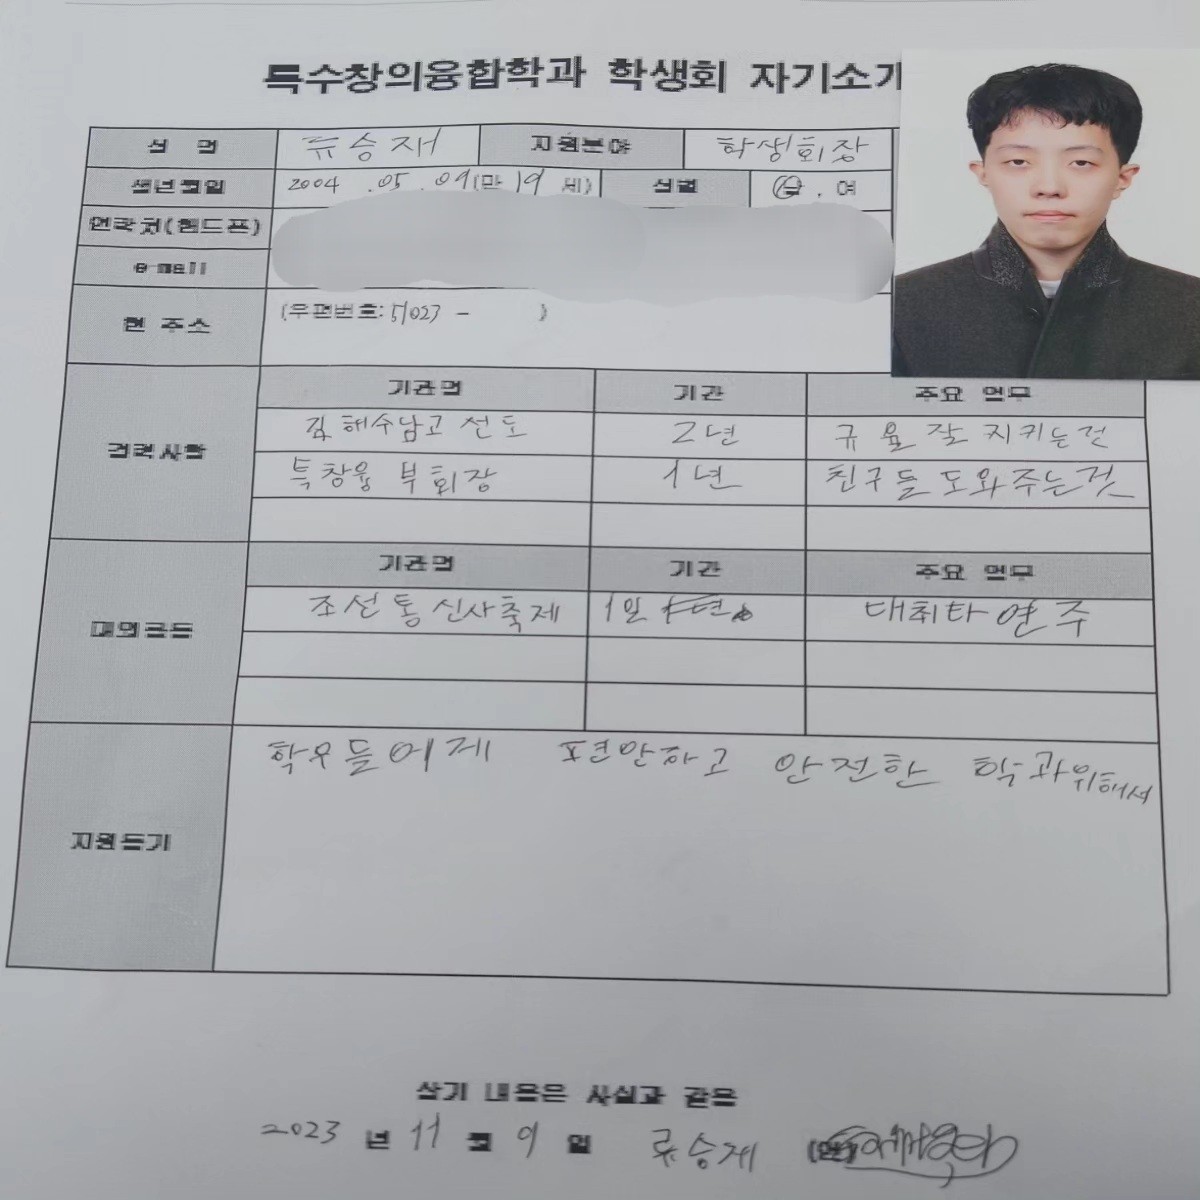 특수창의융합학과 학생회 자기소개
성 명 류승재 지원분야 학생회장
생년월일 2004 .05. 09(만 19 세) 성별 남, 여
연락처(핸드폰)
e-mail
현 주소 (우편번호: 51023 - )
경력사항 기관명 기간 주요 업무
김해수남고 선도 2년 규율 잘 지키는것
특창융 부회장 1년 친구들 도와주는것
대외활동 기관명 기간 주요 업무
조선통신사축제 1일 대취타 연주
지원동기 학우들에게 편안하고 안전한 학과위해서
상기 내용은 사실과 같음
2023 년 11 월 9 일 류승재 (인)